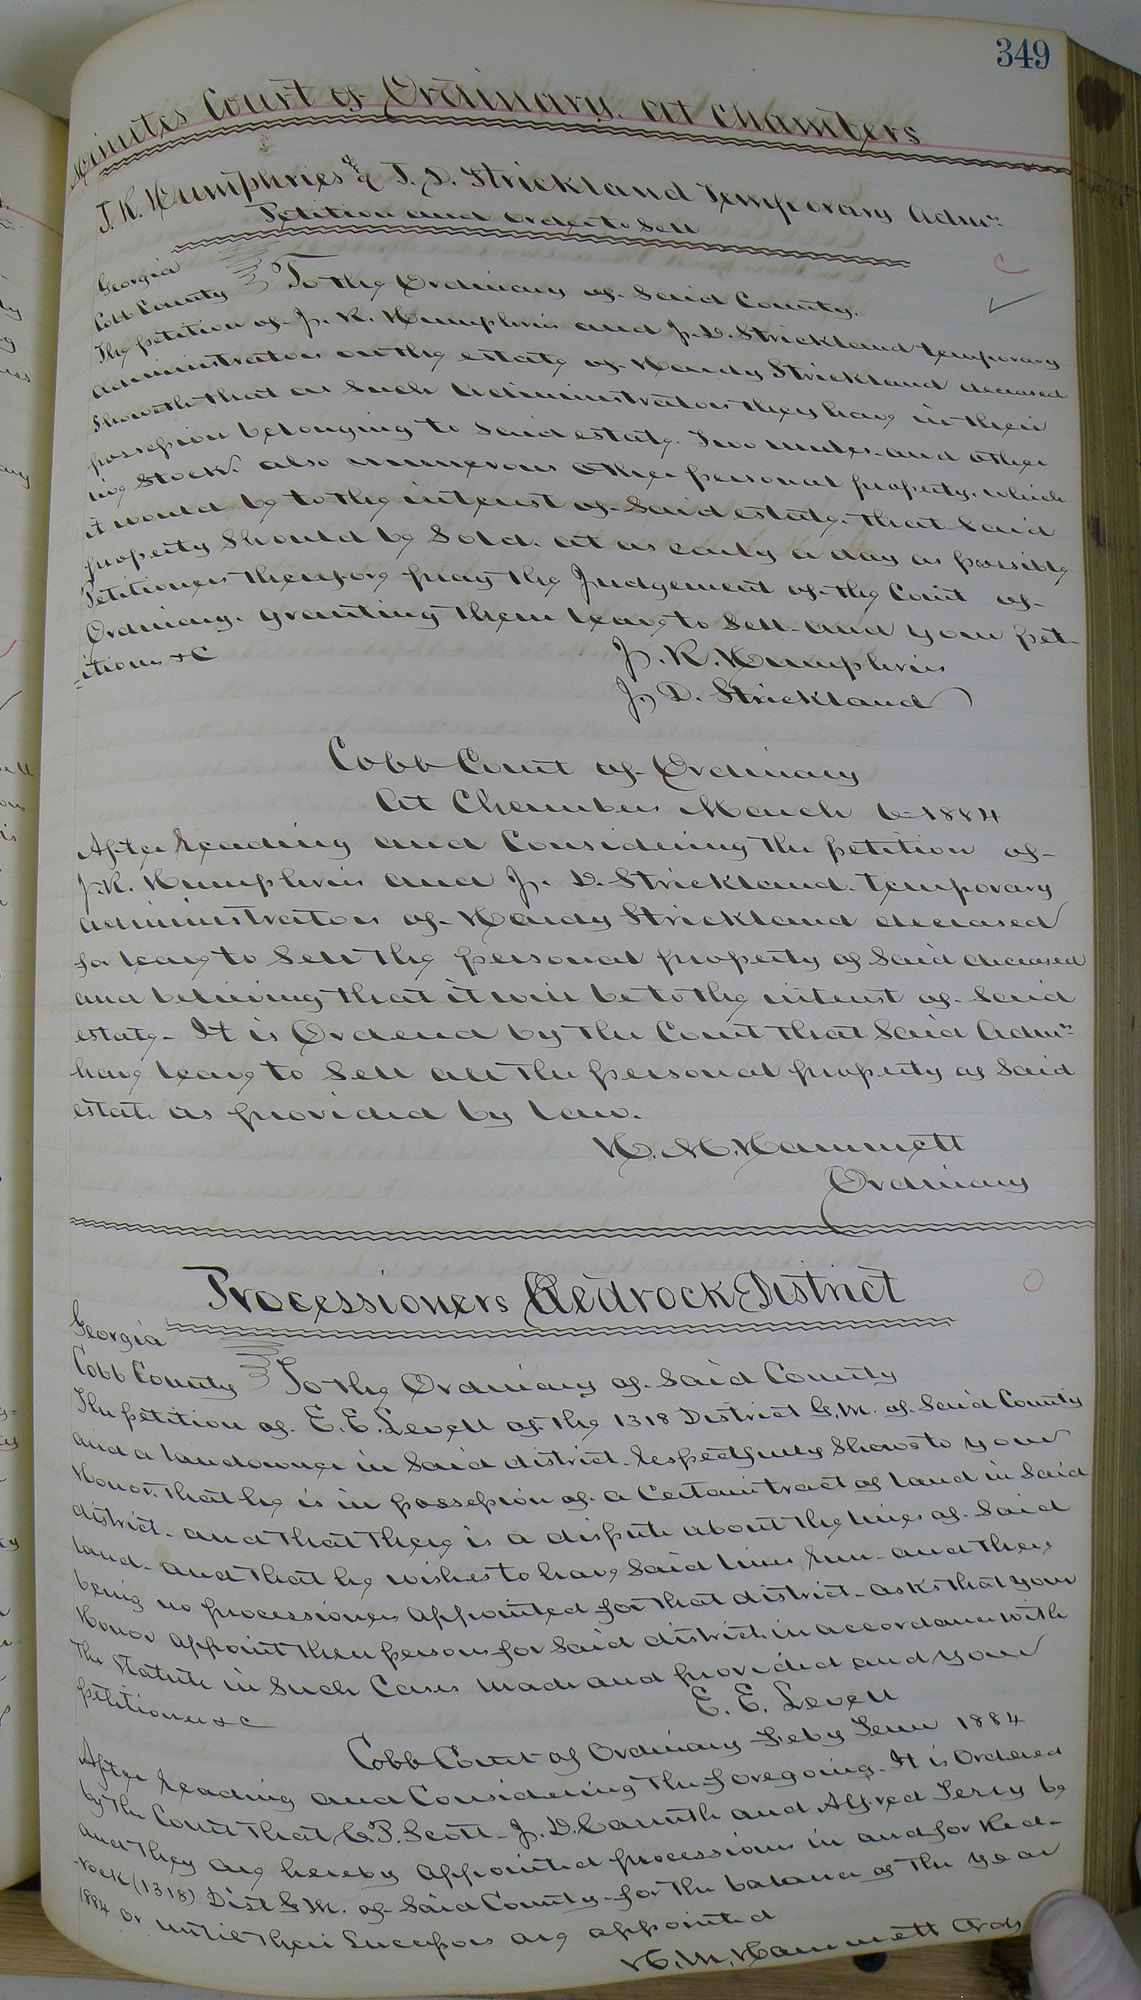 349
Minutes Court of Ordinary. at Chambers
J. K. Humphries & J. D. Strickland Temporary Admrs
Petition and order to Sell
Georgia
Cobb County To the Ordinary of Said County.
The petition of J. K. Humphries and J. D. Strickland temporary
administrators on the estate of Handy Strickland deceased
Showeth that as Such Administrators they have in their
possession belonging to Said estate. Two mules and other
live Stock. also numerous other personal property. which
it would be to the interest of Said estate. that Said
property Should be Sold. at as early a day as possible
Petitioners therefore pray the Judgement of the Court of
Ordinary. granting them leave to Sell. and your pet-
-itioners &C
J. K. Humphries
J. D. Strickland
Cobb Court of Ordinary
At Chambers March 6 1884
After Reading and Considering the petition of
J. K. Humphries and J. D. Strickland. temporary
administrators of Handy Strickland deceased
for leave to Sell the personal property of Said deceased
and believing that it will be to the interest of Said
estate. It is Ordered by the Court that Said Admrs
have leave to Sell all the personal property of Said
estate as provided by law.
H. M. Hammett
Ordinary
Processioners Redrock District
Georgia
Cobb County To the Ordinary of Said County
The petition of E. E. Levell of the 1318 District G. M. of Said County
and a landowner in Said district. Respectfully Shows to your
Honor. that he is in possession of a Certain tract of land in Said
district. and that there is a dispute about the lines of Said
land. and that he wishes to have Said lines Run. and there
being no processioners Appointed for that district. asks that your
Honor Appoint three persons for Said district in accordance with
The Statute in Such Cases made and provided and your
petitioner &c
E. E. Levell
Cobb Court of Ordinary Feby Term 1884
After Reading and Considering The foregoing. It is Ordered
by the Court that C. P. Scott. J. D. Carnith and Alfred Terry be
and they are hereby Appointed processioners in and for Red-
-rock (1318) Dist G. M. of Said County for the balance of the year
1884 or until their Successors are appointed
H. M. Hammett Ordy